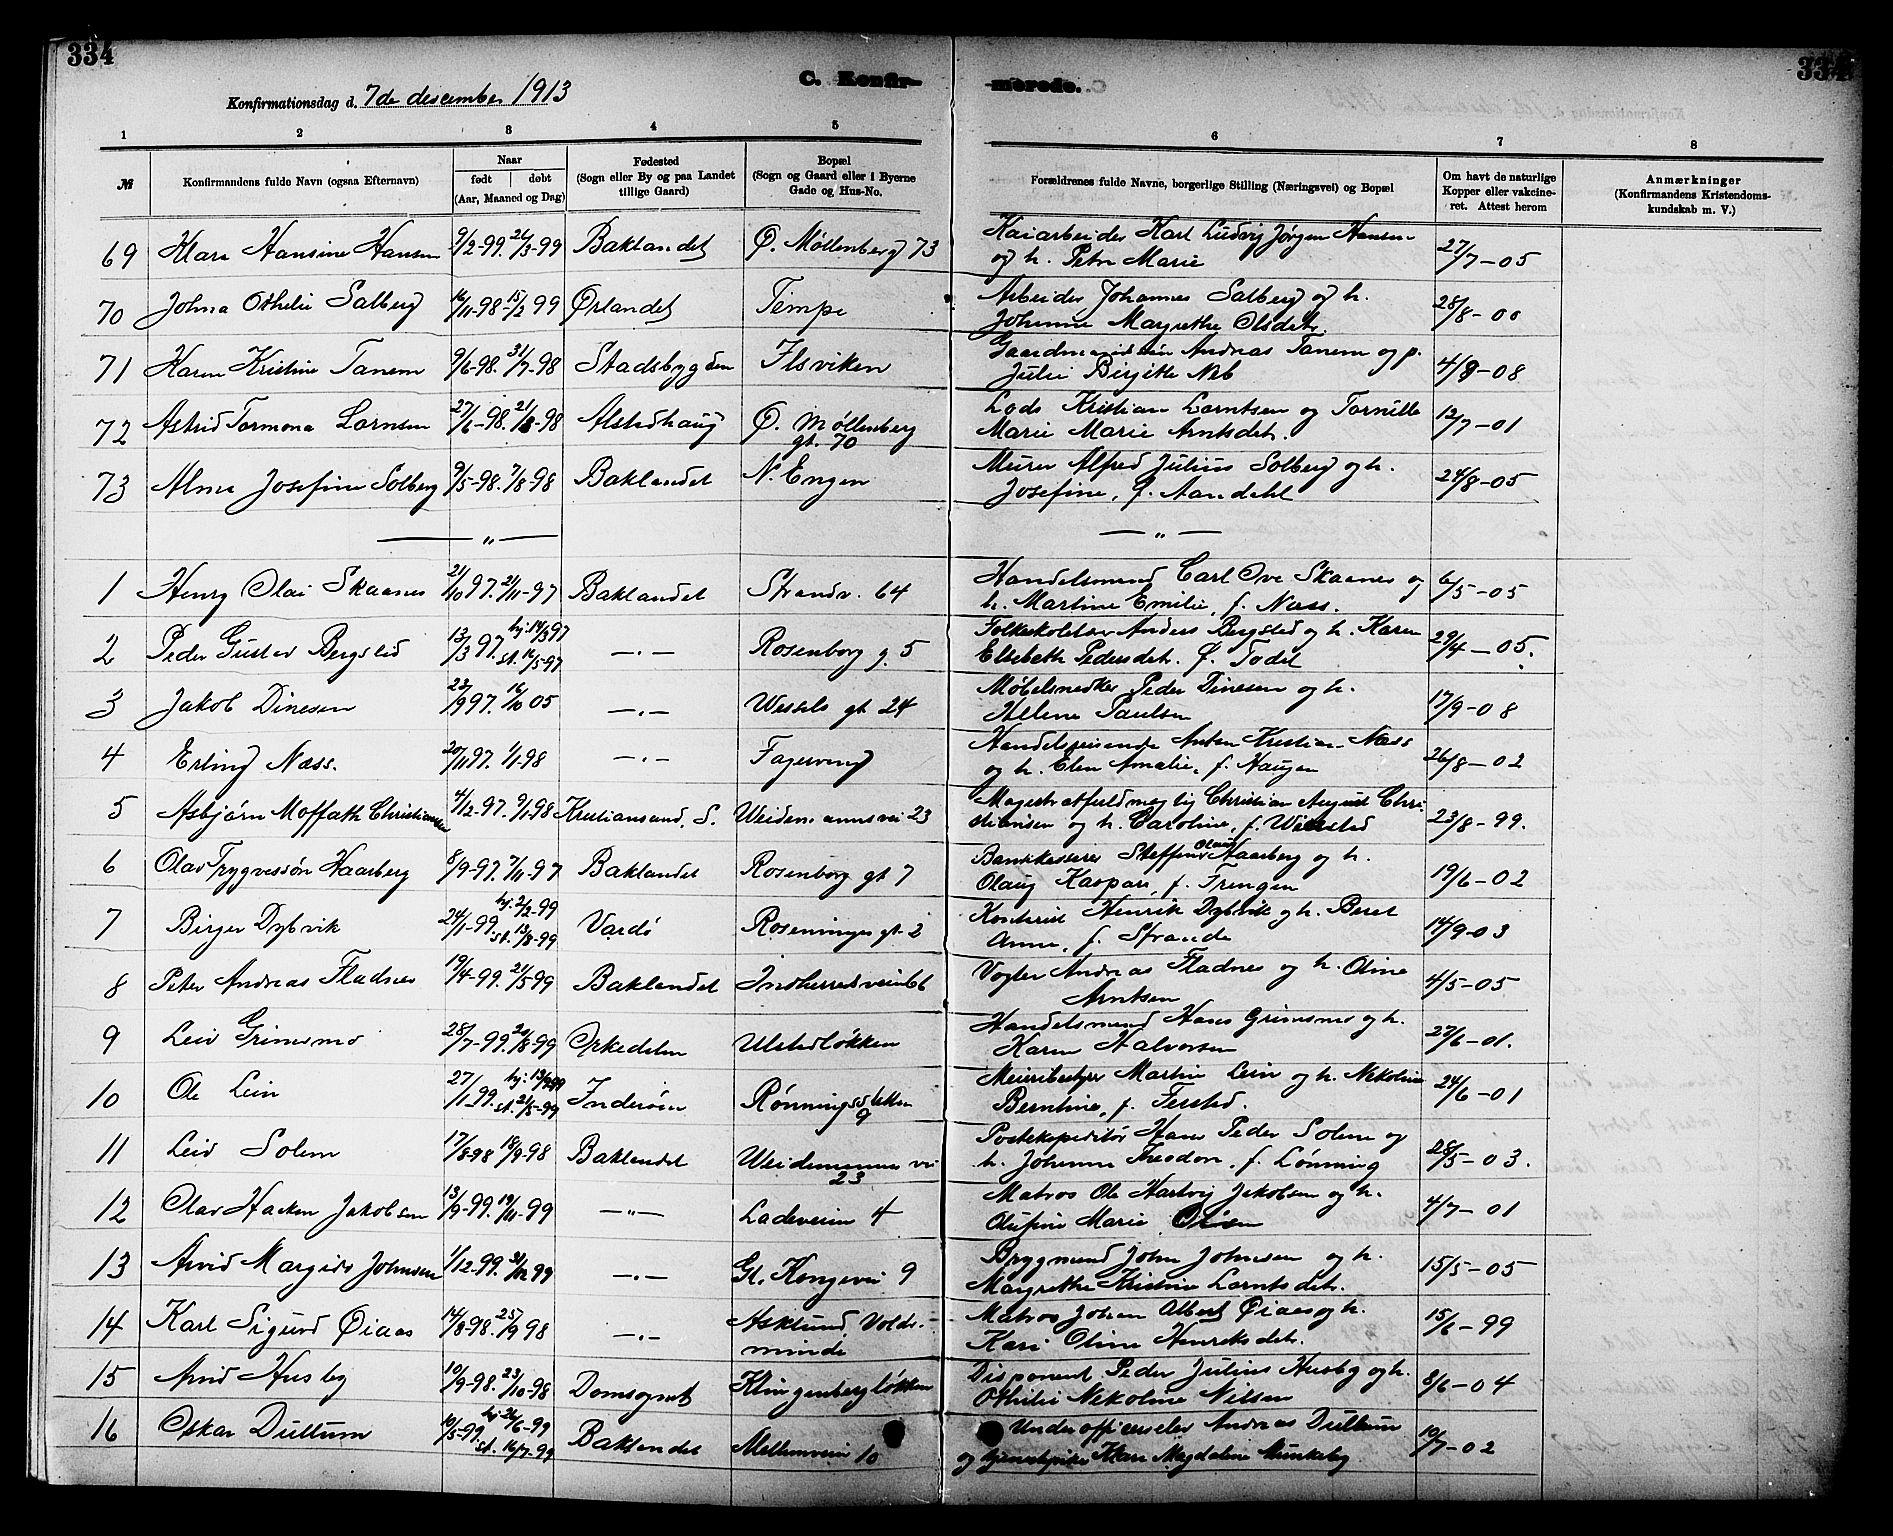 334
334
C. Konfir-
merede.
Konfirmationsdag d. 7de desember 1913
1 2 3 4 5 6 7 8
№
Konfirmandens fulde Navn (ogsaa Efternavn)
Naar
født døbt
(Aar, Maaned og Dag)
Fødested
(Sogn eller By og paa Landet
tillige Gaard)
Bopæl
(Sogn og Gaard eller i Byerne
Gade og Hus-No.
Forældrenes fulde Navne, borgerlige Stilling (Næringsvei) og Bopæl
Om havt de naturlige
Kopper eller vakcine-
ret. Attest herom
Anmærkninger
(Konfirmandens Kristendoms-
kundskab m. V.)
69 Klara Hansine Hansen 9/2-99. 26/3-99 Baklandet Ø. Møllenberg 73 Kaiarbeider Karl Ludvig Jørgen Hansen
og h. Petra Marie 27/7-05
70 Johna Othelie Salberg 16/11-98 15/2 99 Ørlandet Tempe Arbeider Johannes Salberg og h.
Johanne Margrethe Olsdtr. 28/8-00
71 Karen Kristine Tanem 9/6-98. 31/7-98 Stadsbygden Ilsviken Andreas Tanem og p.
Julie Birgitte 4/8-08
72 Astrid Tormona Lornsen 27/6-98. 21/8-98 Alstadhaug Ø. Møllenberg
gt. 70 Lods Kristian Larntsen og
Marie Marie Arntsdtr. 12/7-01
73 Alma Josefine Solberg 9/5-98. 7/8-98 Baklandet N. Engen Murer Alfred Julius Solberg og h.
Josefine, f. Aandahl 24/8-05
— " — — " —
1 Henry Olai Skaanes 21/10 97. 21/11-97 Baklandet Strandv. 64 Handelsmand Carl Ove Skaanes og
h. Martine Emilie, f. Næss. 6/5-05
2 Peder Gustav Bergsted 13/3 97. hj. 14/3 97
st. 16/5-97 —"— Rosenborg g. 5 Folkeskolelærer Anders Bergsted og h. Karen
Elsebeth Pedersdtr. 29/4-05.
3 Jakob Dinesen 23/9 97. 16/10 05 —"— Wessels gt 24 Møbelsnedker Peder Dinesen og h.
Helene Paulsen 17/9-08
4 Erling Næss. 20/11 97. 1/1-98 —"— Fagerveng Handelsreisende Anton Kristian Næss
og h. Elen Amalie, f. Haugen 26/8-02
5 Asbjørn Moffath Christiansen 4/12-97. 9/1-98 Kristiansand. S. Weidemannsvei 23 Magistratfuldmegtig Christian August Chri-
stiansen og h. Caroline, f. 23/8-99.
6 Olav Trygvessøn Haarberg 8/9-97. 7/11-97 Baklandet Rosenborg gt 7 Bankkasserer Steffen Olaus Haarberg og h.
Olaug Kaspara, f. 19/6-02
7 Birger Dybvik 24/1-99. hj. 2/2-99
st. 13/8-99 Vardø gt. 2 Henrik Dybvik og h. Beret
Anna, f. Strande 14/9-03
8 Peter Andreas Fladnes 19/4-99. 21/5 99 Baklandet Indherredsveien 66 Vogter Andreas Fladnes og h. Oline
Arntsen 4/5-05
9 Leiv Grimsmo 28/7-99. 20/8-99 Orkedalen Ulstadløkken Handelsmand Hans Grimsmo og h.
Karen Halvorsen 27/6-01.
10 Ole Lein 27/1 99. hj.
st. 21/5-99 Inderøen Rønningsletten
9 Meieribestyr Martin Lein og h. Nekoline
Berntine, f. 24/6-01
11 Leiv Solem 17/8-98 18/9-98 Baklandet Weidemanns vei
23 Postekspeditør Hans Peder Solem og
h. Johanne Theodora, f. Lønning 28/5-03.
12 Olav Haakon Jakobsen 13/9-99. 19/11-99 —"— Ladeveien 4 Matros Ole Hartvig Jakobsen og h.
Olufine Marie Olsen 4/7-01
13 Arvid Margido Johnsen 1/12-99. 31/12 99 —"— Gl. Kongevei 9 Brygmand John Johnsen og h.
Margrethe Kristine Larntsdtr. 15/5-05
14 Karl Sigurd Øiaas 14/8-98. 25/9 98 —"— Asklund Volds-
minde Matros Johan Albert Øiaas og h.
Kari Oline Henriksdtr. 15/6-99
15 Arvid Husby 10/9-98. 23/10-98 Domsognet Klingenbergløkken Disponent Peder Julius Husby og h.
Othilie Nekoline Nilsen 8/6-04
16 Oskar Duttum 10/5-99. hj. 26/6-99
st. 16/7-99 Baklandet Mellemveien 10 Underofficerselev Andreas Duttum
og tjenestepike Klara Magdalene Munkeby 10/7-02